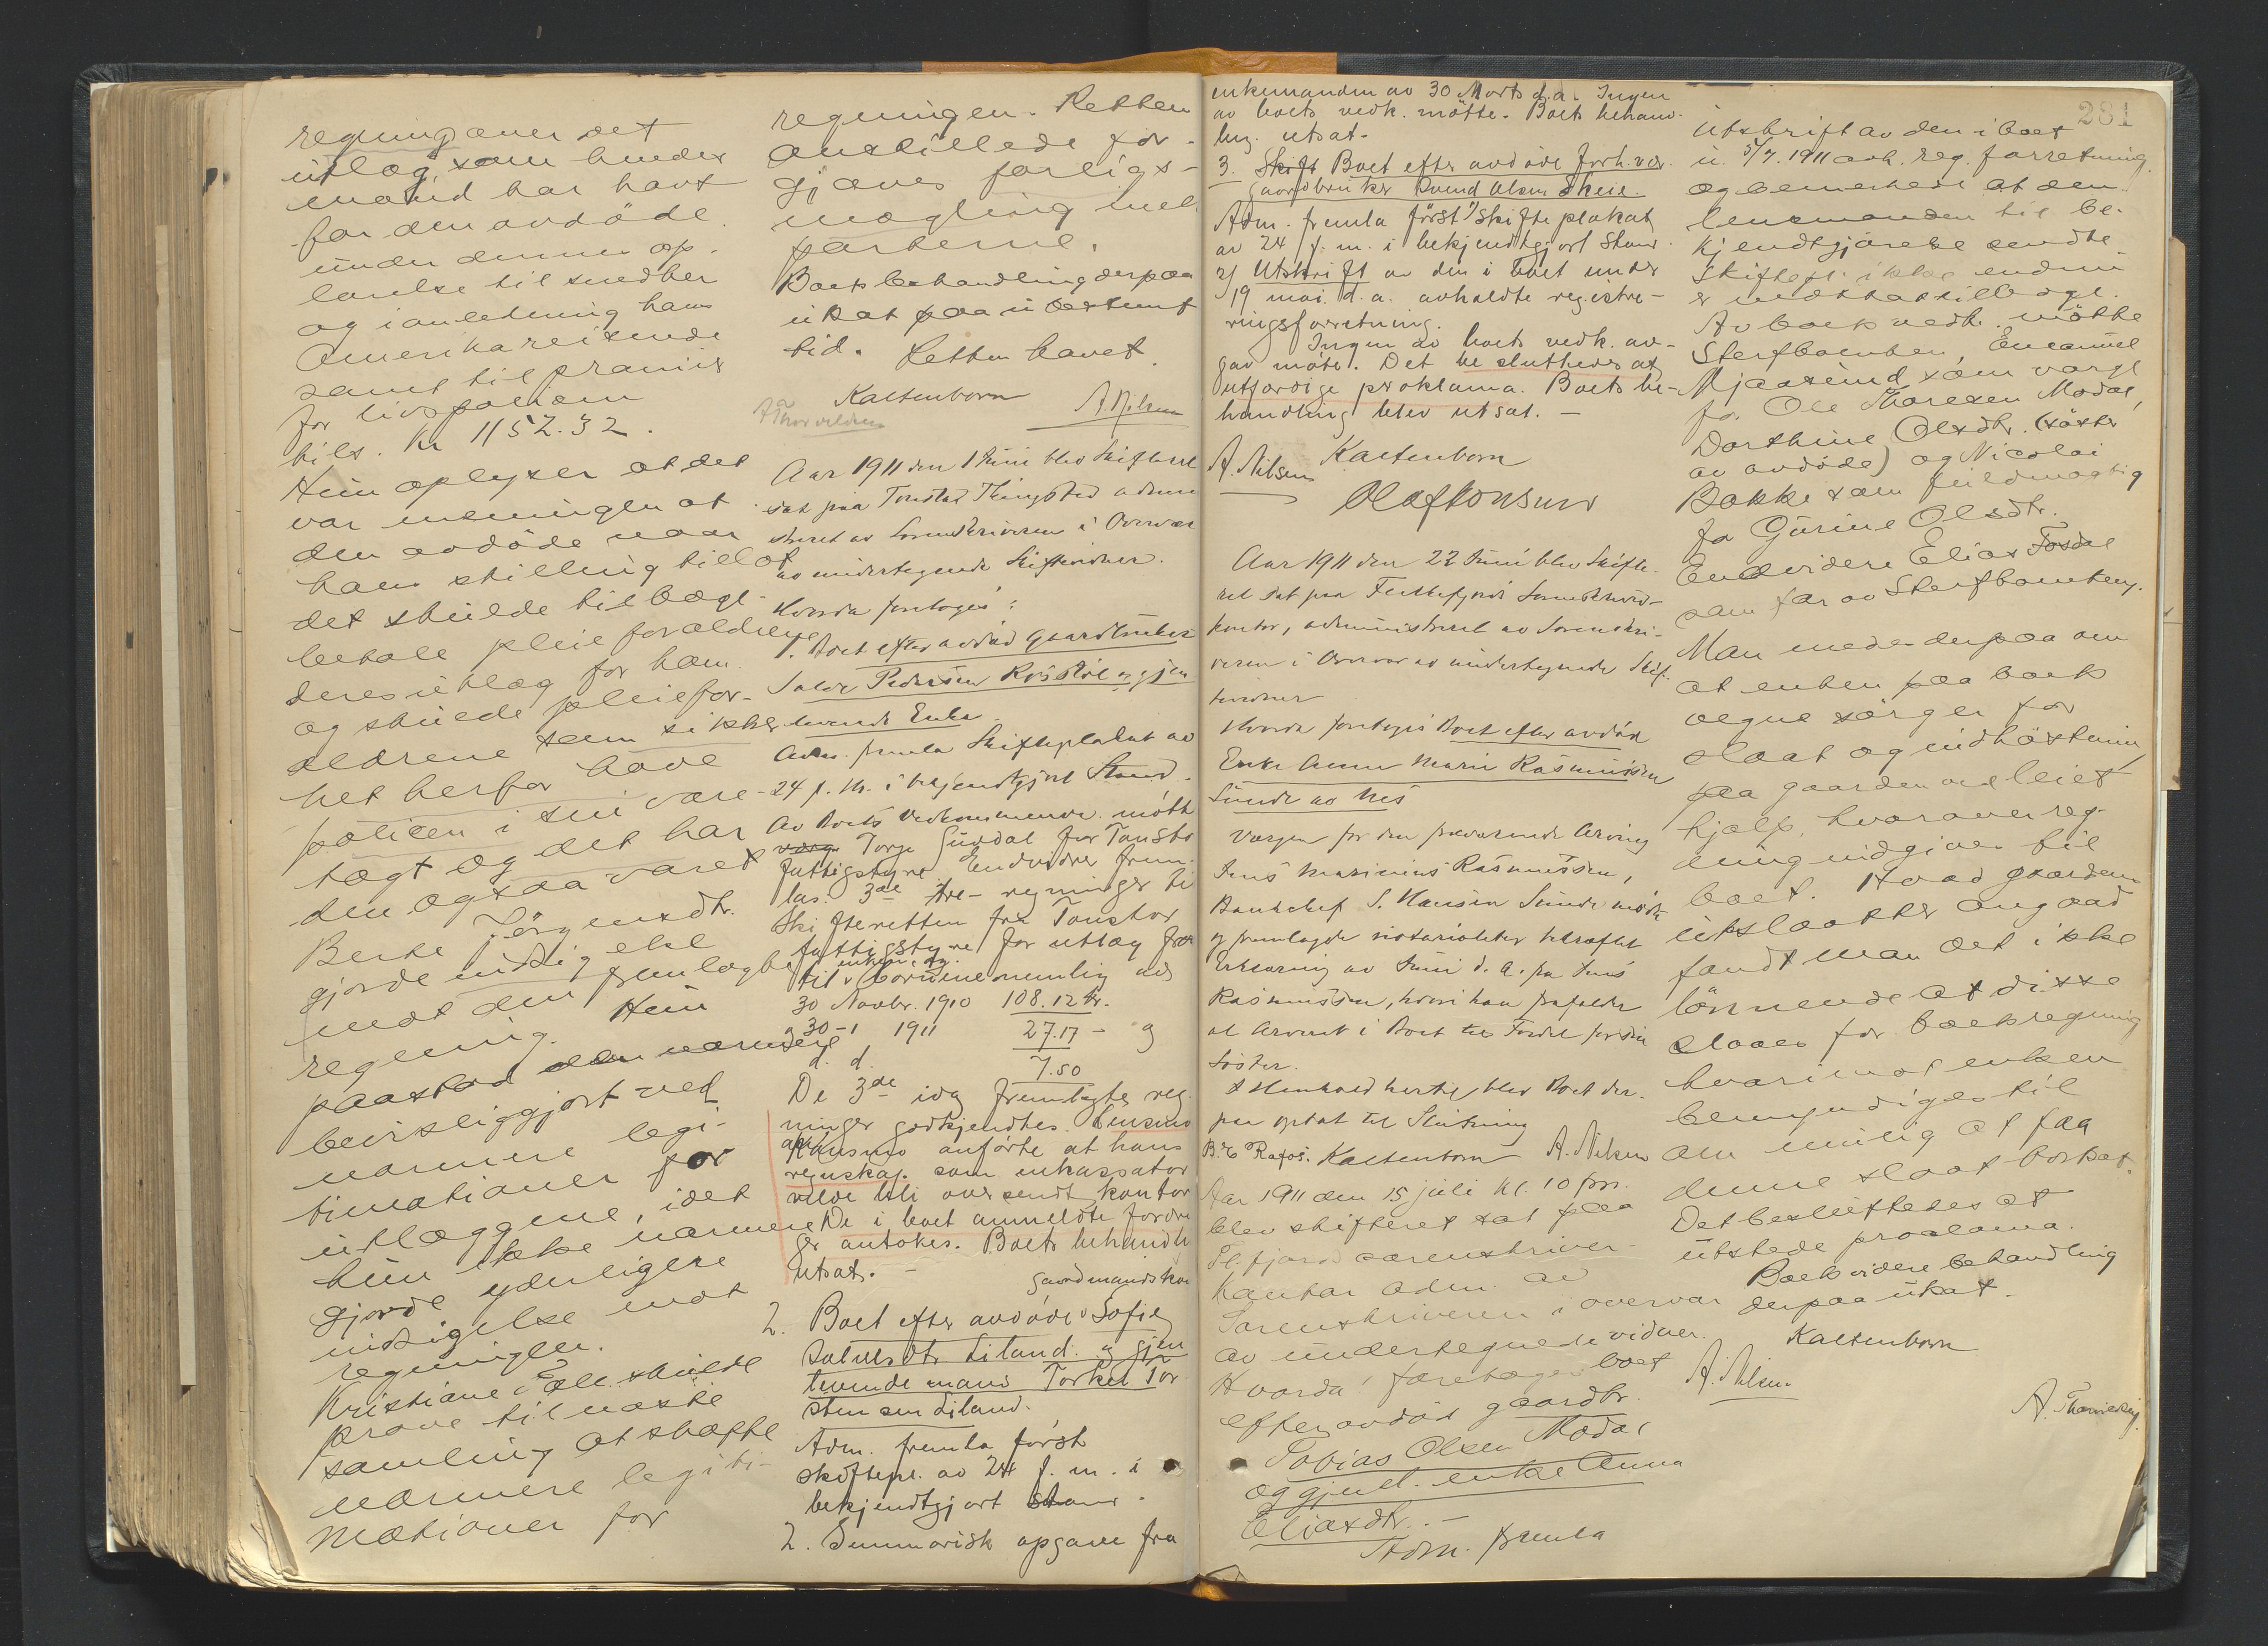 regning over det
utlæg, som hendes
mand har havt
for den avdöde
under dennes op-
larelse til snedker
og i anledning hans
Amerikareisende
samt til præmier
for livspolicen
tils. Kr 1152.32.
Hun oplyser at det
var meningen at
den avdöde naar
hans stilling tillot
det skulde tilbage-
betale pleieforældrene
deres utlæg for ham
og skulde pleiefor-
ældrene som sikker-
het herfor have
policen i sin vare-
tægt og det har
den ogsaa været
Berte Jörgensdtr.
gjorde indsigelse
mot den fremlagte
regning. Hun
paastod den nærmere
bevisliggjort ved
nærmere legi-
timationer for
utlæggene, idet
hun ikke nærmere
gjorde yderligere
indsigelse mot
regningen.
Kristiane Ell. skulde
pröve til næste
samling at skaffe
nærmere legiti-
mationer for
regningen. Retten
anstillede for-
gjæves forligs-
mægling mel.
parterne.
Boets behandling derpaa
utsat paa ubestemt
tid. Retten hævet.
Kaltenborn
A. Nilsen
A Thorvaldsen
Aar 1911 den 1 Juni blev Skifteret
sat paa Tonstad Thingsted admini
streret av Sorenskriveren i Overvær
av undertegnede Skiftevidner.
Hvorda foretoges:
1. Boet efter avdød Gaardbruker
Salve Pedersen Rösstöl og gjen-
levende Enke.
Adm. fremla Skifteplakat av
24 f. M. i bekjendtgjort Stand.
Av Boets Vedkommende mötte
værge Torje Guddal for Tonstd
Fattigstyre. Endvidere frem-
las. 3de tre- regninger til
Skifteretten fra Tonstad
fattigstyre for utlæg for
enken og
til börnene nemlig ad
30 Novbr. 1910 108.12 kr.
30-1 1911 27.17 - og
d. d. 7.50
De 3de idag fremlagte reg-
ninger godkjendtes. Lensmd
Haunsmo anförte at hans
regnskap som inkassator
vilde bli oversendt kontor
De i boet anmeldte fordrin
ger antokes. Boets behandl
utsat. -
gaardmandskon
2. Boet efter avdöde Sofie
Salvesdtr. Liland og gjen
levende mand Torkel Tor-
stensen Liland.
Adm. fremla först
skiftepl. av 24 f. m. i
bekjendtgjort stand.
2. Summarisk opgave fra
281
enkemanden av 30 Marts d.a. Ingen
av boets vedk. mötte. Boets behand-
ling utsat-
3. Skift Boet efter avdöde forh.vær.
Gaardbruker Svend Olsen Skeie.
Adm. fremla först 1/ Skifteplakat
av 24 f. m. i bekjendtgjort Stand.
2/ Utskrift av den i boet under
19 mai d.a. avholdte registre-
ringsforretning.
Ingen av boets vedk. av-
gav möte. Det besluttedes at
utfærdige proklama. Boets be-
handling blev utsat. -
Kaltenborn
A. Nilsen
Olaf Konsmo
Aar 1911 den 22 Juni blev Skifte-
ret sat paa Fedefjords Sorenskriver-
kontor, administreret av Sorenskri-
veren i Overvær av undertegnede Skif-
tevidner
Hvorda foretoges Boet efter avdöd
Enke Anne Marie Rasmussen
Sunde av Nes
Værgen for den fraværende Arving
Jens Marinius Rasmussen,
Bankchef S. Hansen Sunde mötte
og fremlagde notarialiter bekræftet
Erklæring av Juni d. A. fra Jens
Rasmussen, hvori han frafalder
al Arveret i Boet til Fordel for sin
Söster.
I Henhold hertil blev Boet der-
paa optat til Slutning
B. E. Rafos. Kaltenborn A. Nilsen
Aar 1911 den 15 juli kl. 10 fm.
blev skifteret sat paa
Fl.fjord sorenskriver-
kontor adm. av
Sorenskriveren i overvær
av undertegnede vidner.
Hvorda: foretoges boet
efter avdöd gaardbr.
Tobias Olsen Modal
og gjenl. enke Anna
Eliasdtr. -
Adm. fremla
Utskrift av den i boet
u. 5/7. 1911 avh. reg. forretning.
og bemerkede at den
lensmanden til be-
kjendtgjörelse sendte
Skiftepl. ikke endnu
er indkommet tilbage.
Av boets vedk. mötte
Sterfboenken, Emanuel
Mjaasund som værge
for Ole Thoresen Modal,
Dorthine Olsdtr. (söster
av avdöde) og Nicolai
Bakke som fuldmægtig
for Gurine Olsdtr.
Endvidere Elias Fosdal
som far av Sterfboenken.
Man enedes derpaa om
at enken paa boets
vegne sörger for
slaat og indhöstning
paa gaarden ved leiet
hjælp, hvorover reg-
ning indgives til
boet. Hvad gaardens
utslaatter angaad
fandt man det ikke
lönnende at disse
slaaes for boets regning
hvorimot enken
bemyndiges til
om mulig at faa
denne slaat bortsat.
Det besluttedes at
utstede proclama.
Boets videre behandling
derpaa utsat.
Kaltenborn
A. Nilsen
A. Thorvaldsen